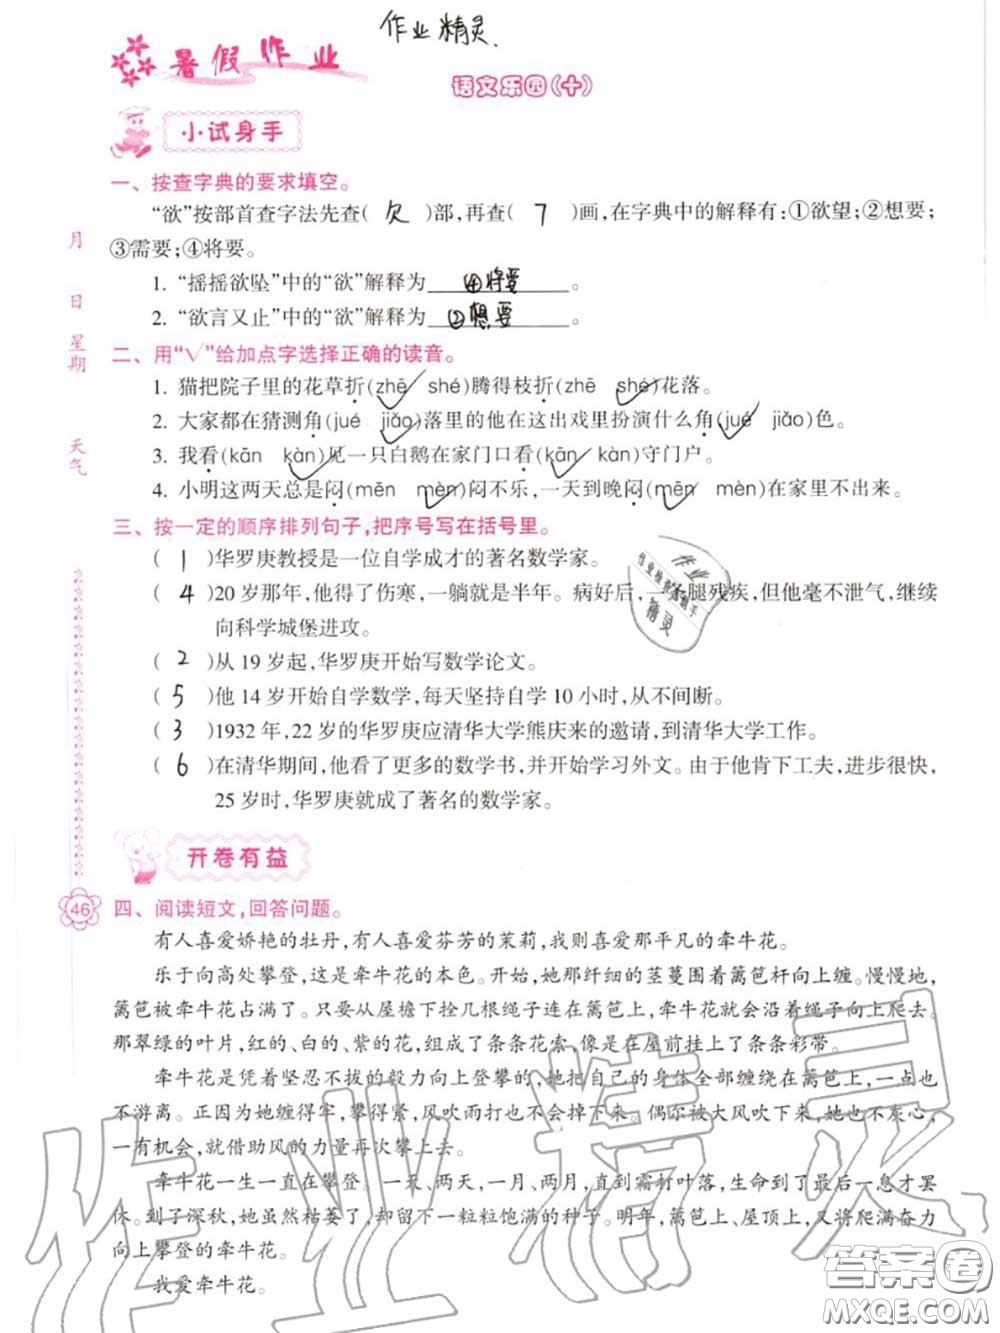 作业精灵.
暑假作业
语文乐园(十)
小试身手
一、按查字典的要求填空。
“欲”按部首查字法先查( 欠 )部,再查( 7 )画,在字典中的解释有:①欲望;②想要;
③需要;④将要。
1. “摇摇欲坠”中的“欲”解释为 ④将要 。
2. “欲言又止”中的“欲”解释为 ②想要 。
二、用“√”给加点字选择正确的读音。
1. 猫把院子里的花草折(zhē shé√)腾得枝折(zhē shé√)花落。
2. 大家都在猜测角(jué jiǎo√)落里的他在这出戏里扮演什么角(jué√ jiǎo)色。
3. 我看(kān kàn√)见一只白鹅在家门口看(kān√ kàn)守门户。
4. 小明这两天总是闷(mēn mèn√)闷不乐,一天到晚闷(mēn√ mèn)在家里不出来。
三、按一定的顺序排列句子,把序号写在括号里。
( 1 )华罗庚教授是一位自学成才的著名数学家。
( 4 )20岁那年,他得了伤寒,一躺就是半年。病好后,一条腿残疾,但他毫不泄气,继续
向科学城堡进攻。
( 2 )从19岁起,华罗庚开始写数学论文。
( 5 )他14岁开始自学数学,每天坚持自学10小时,从不间断。
( 3 )1932年,22岁的华罗庚应清华大学熊庆来的邀请,到清华大学工作。
( 6 )在清华期间,他看了更多的数学书,并开始学习外文。由于他肯下工夫,进步很快,
25岁时,华罗庚就成了著名的数学家。
开卷有益
四、阅读短文,回答问题。
有人喜爱娇艳的牡丹,有人喜爱芬芳的茉莉,我则喜爱那平凡的牵牛花。
乐于向高处攀登,这是牵牛花的本色。开始,她那纤细的茎蔓围着篱笆杆向上缠。慢慢地,
篱笆被牵牛花占满了。只要从屋檐下拴几根绳子连在篱笆上,牵牛花就会沿着绳子向上爬。
那翠绿的叶片,红的、白的、紫的花,组成了条条花索,像是在屋前挂上了条条彩带。
牵牛花是凭着坚忍不拔的毅力向上登攀的,她把自己的身体全部缠绕在篱笆上,一点也
不游离。正因为她缠得牢,攀得紧,风吹雨打也不会掉下来。偶尔被大风吹下来,她也不灰心,
一有机会,就借助风的力量再次攀上去。
牵牛花一生一直在攀登。一天、两天,一月、两月,直到霜打叶落,生命到了最后一息才罢
休。到了深秋,她虽然枯萎了,却留下一粒粒饱满的种子。明年,篱笆上、屋顶上,又将爬满奋力
向上攀登的牵牛花。
我爱牵牛花。
月
日
星期
天气
46
作业
作业检查小助手
精灵
作业精灵
答案卷
MXQE.COM